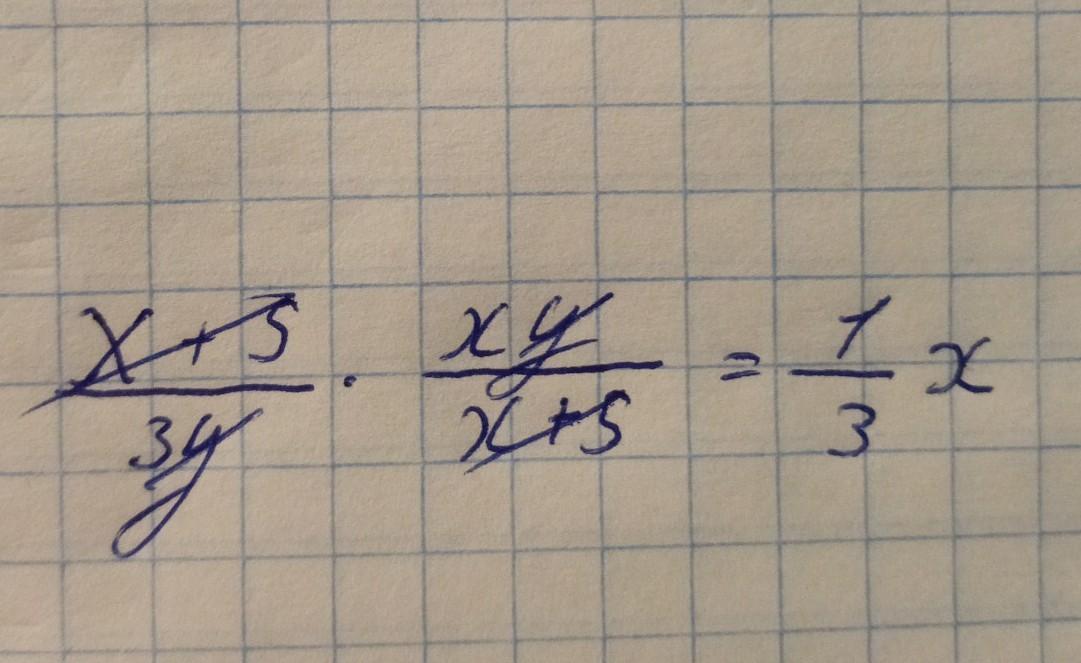 x+5/3y · xy/x+5 = 1/3 x